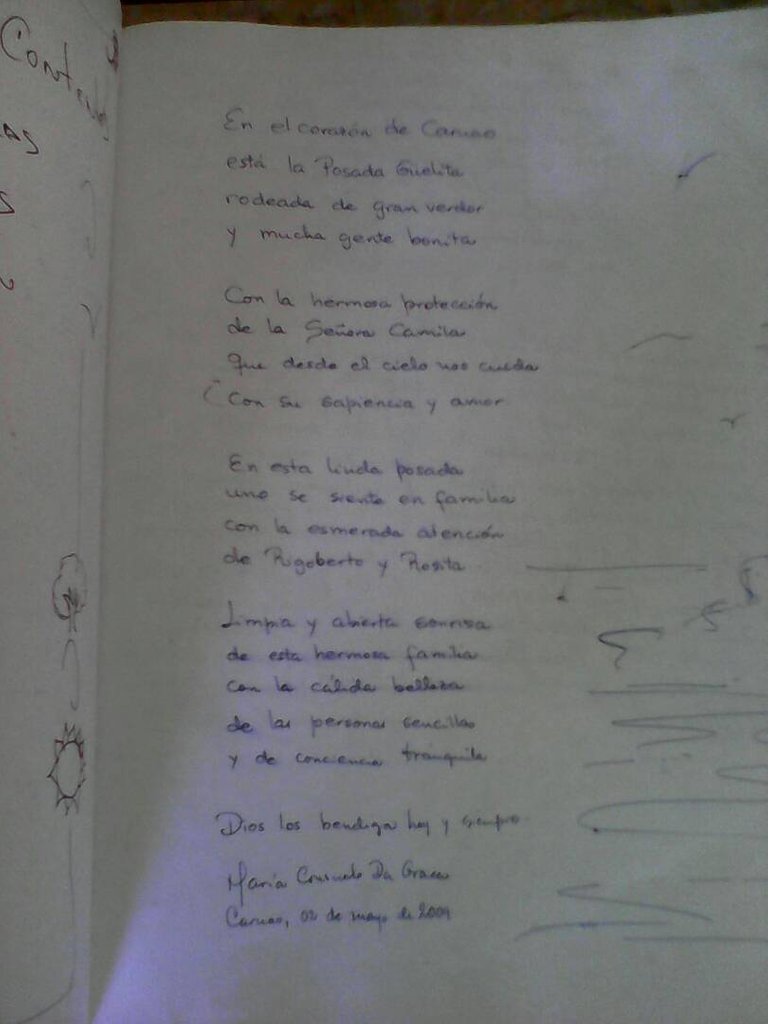 Conten
AS
S
En el corazón de Caruao
está la Posada Güelita
rodeada de gran verdor
y mucha gente bonita
Con la hermosa protección
de la Señora Camila
que desde el cielo nos cuida
Con su sapiencia y amor
En esta linda posada
uno se siente en familia
con la esmerada atención
de Rigoberto y Rosita.
Limpia y abierta sonrisa
de esta hermosa familia
con la cálida belleza
de las personas sencillas
y de conciencia tranquila
Dios los bendiga hoy y siempre.
María Consuelo Da Graca
Caruao, 02 de mayo de 2009